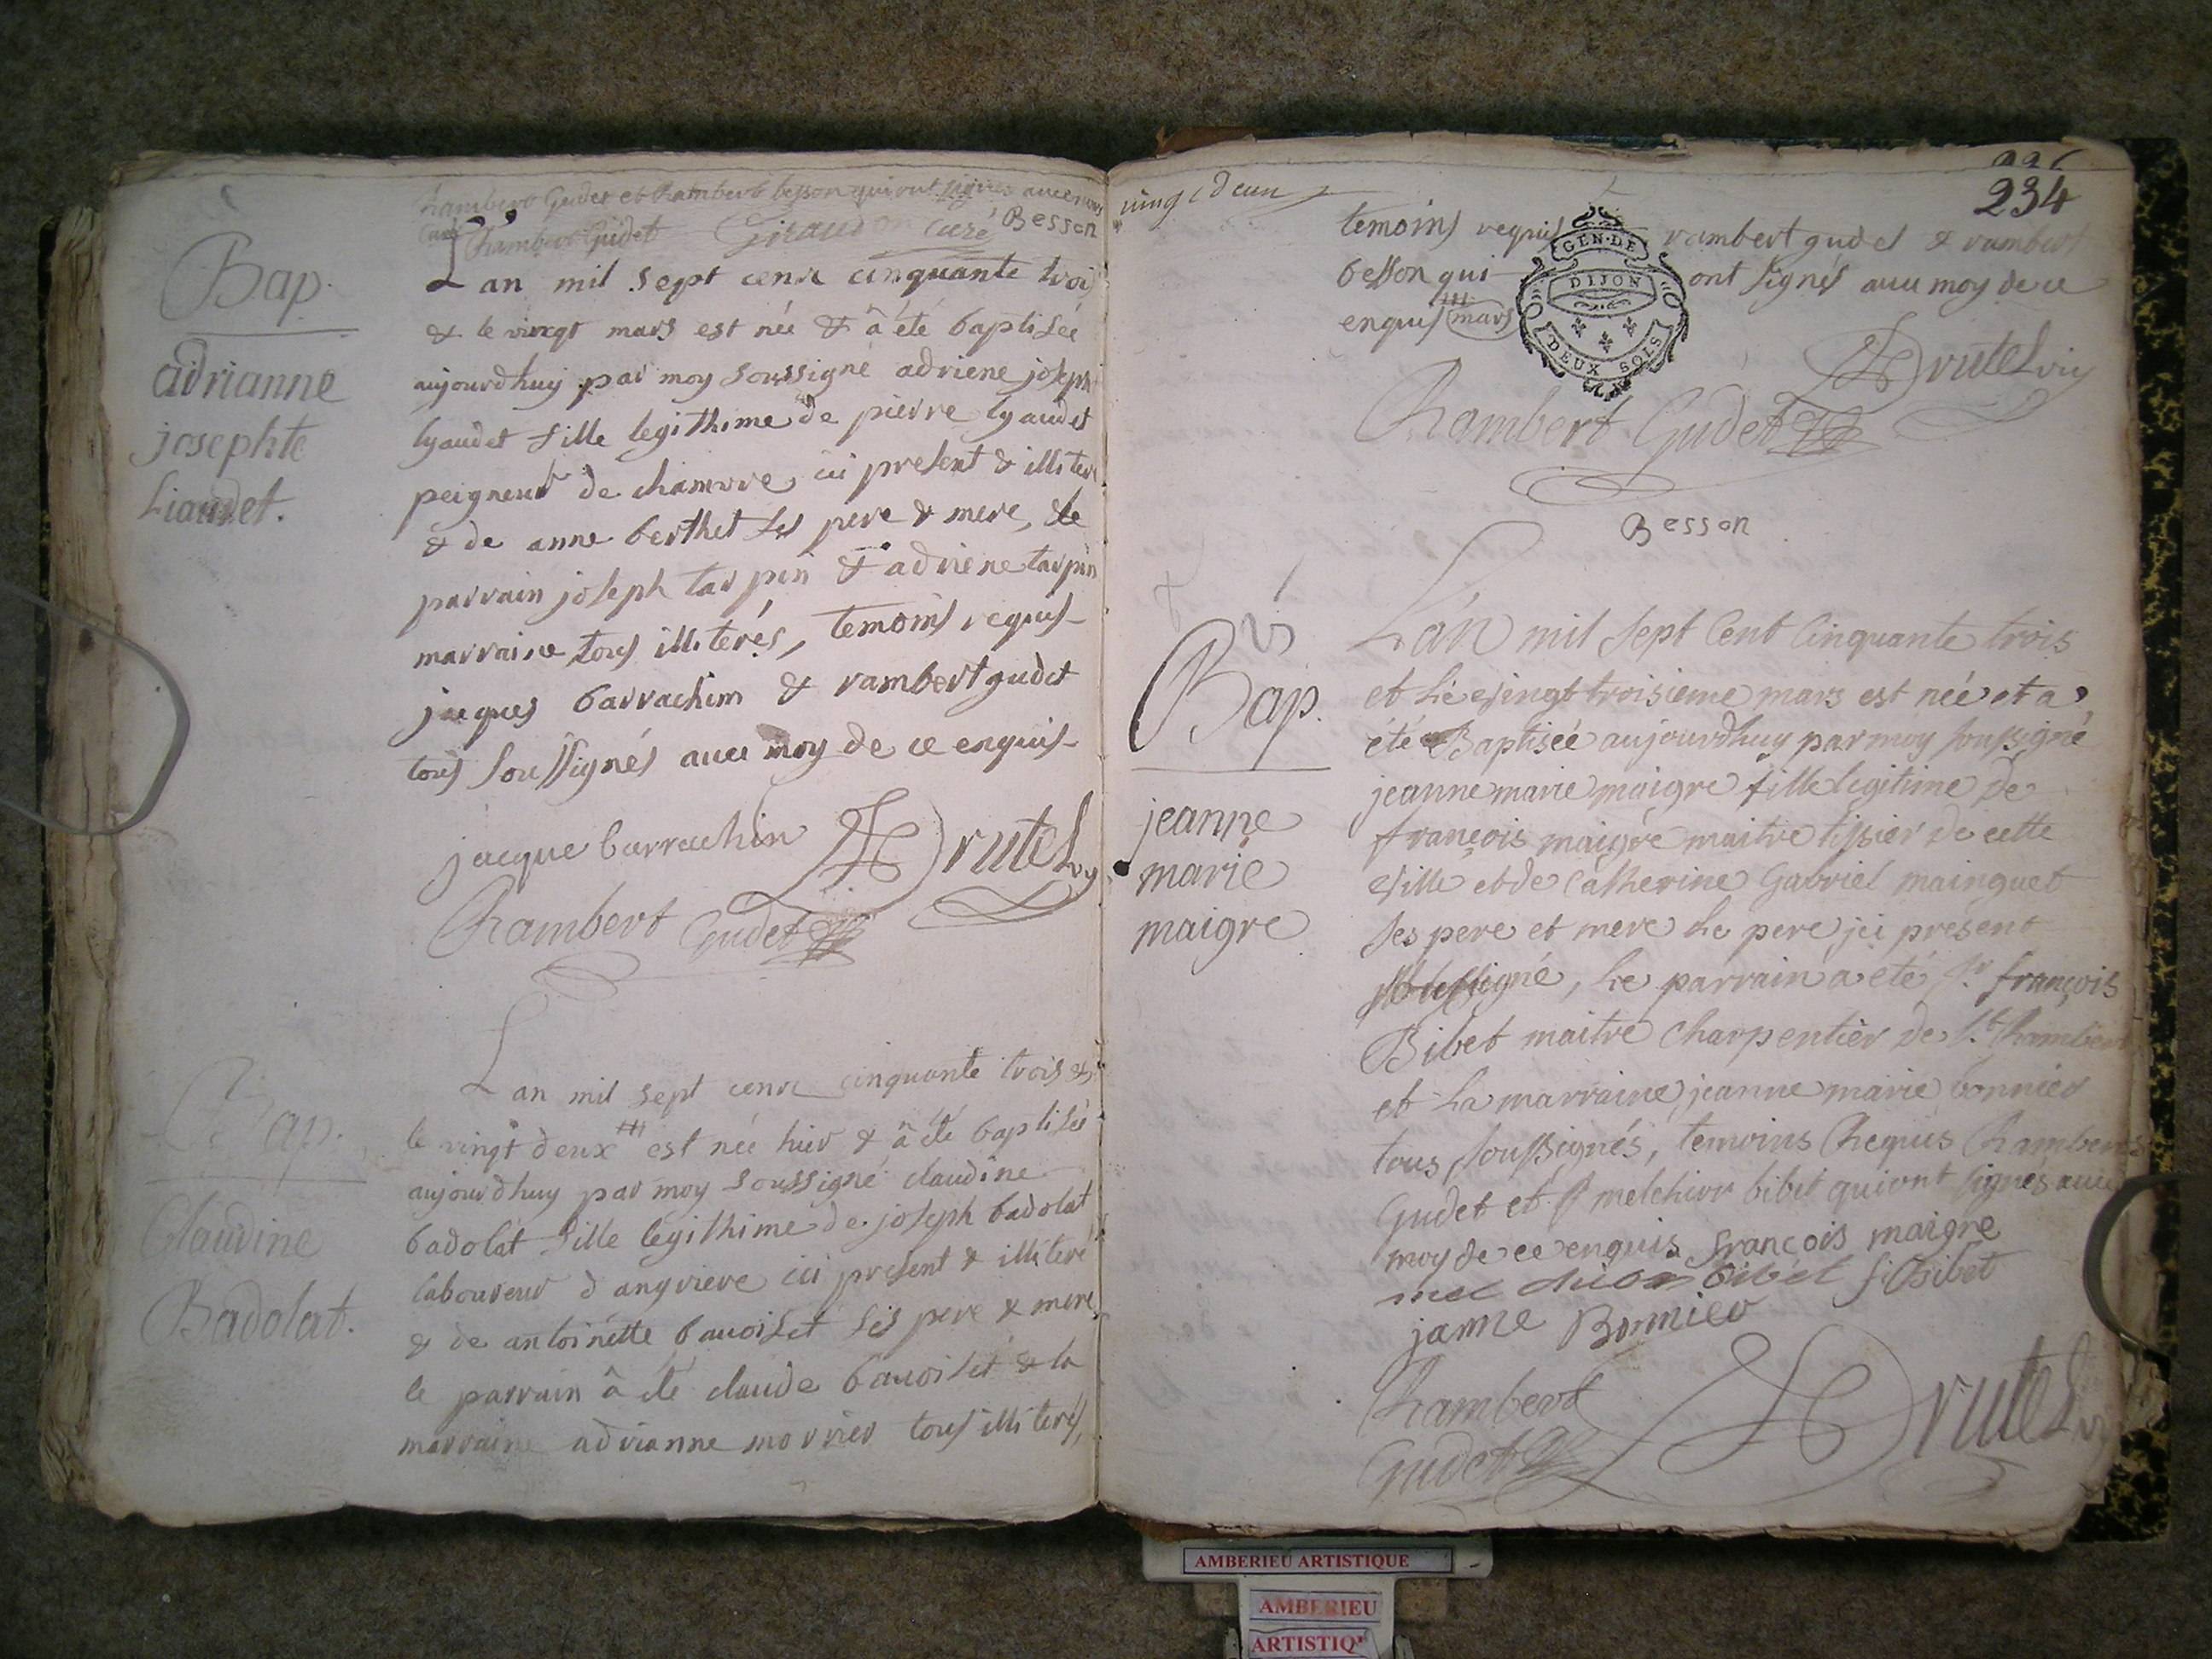 Rambert Gudet et Rambert besson qui ont signés avec moy
Rambert Gudet Giraud curé Besson
Bap.
adrianne
josephte
Liaudet.
Lan mil sept cent cinquante trois
& le vingt mars est née & â été baptisée
aujourdhuy par moy soussigné adriene joseph
lyaudet fille legithime de pierre lyaudet
peigneur de chanvre ici present & illiteré
& de anne berthet ses pere & mere, le
parrain joseph tarpin & adriene tarpin
marraine tous illiterés, temoins requis
jacques barrachim & rambert gudet
tous soussignés avec moy de ce enquis
jacque barrachin Drutel
Rambert Gudet
Bap.
Claudine
Badolat.
Lan mil sept cent cinquante trois &
le vingt deux est née hier & â été baptisée
aujourdhuy par moy soussigné claudine
badolat fille legithime de joseph badolat
laboureur d angriere ici present & illiteré
& de antoinette bavoiset ses pere & mere
le parrain â été claude bavoiset & la
marraine adrianne morrier tous illiterés,
vingt deux
234
temoins requis rambert gudet & rambert
besson qui ont signés avec moy de ce
enquis mars
GEN·DE
DIJON
DEUX SOLS
Drutel vic
Rambert Gudet
Besson
Bap.
jeanne
marie
maigre
Lán mil sept Cent Cinquante trois
et Le vingt troisieme mars est née et a
été Baptisée aujourdhuy par moy soussigné
jeanne marie maigre fille legitime de
françois maigre maitre tissier de cette
ville et de Catherine Gabriel mainguet
ses pere et mere Le pere ici present
soussigné, Le parrain a eté sr. françois
Bibet maitre Charpentier de St. Rambert
et La marraine jeanne marie bonnier
tous soussignés, temoins Requis Rambert
Gudet et melchior bibet qui ont signés avec
moy de ce enquis françois maigre
mel chior bibet f Bibet
janne Bonnier
Rambert
Gudet Drutel
AMBERIEU ARTISTIQUE
AMBERIEU
ARTISTIQ